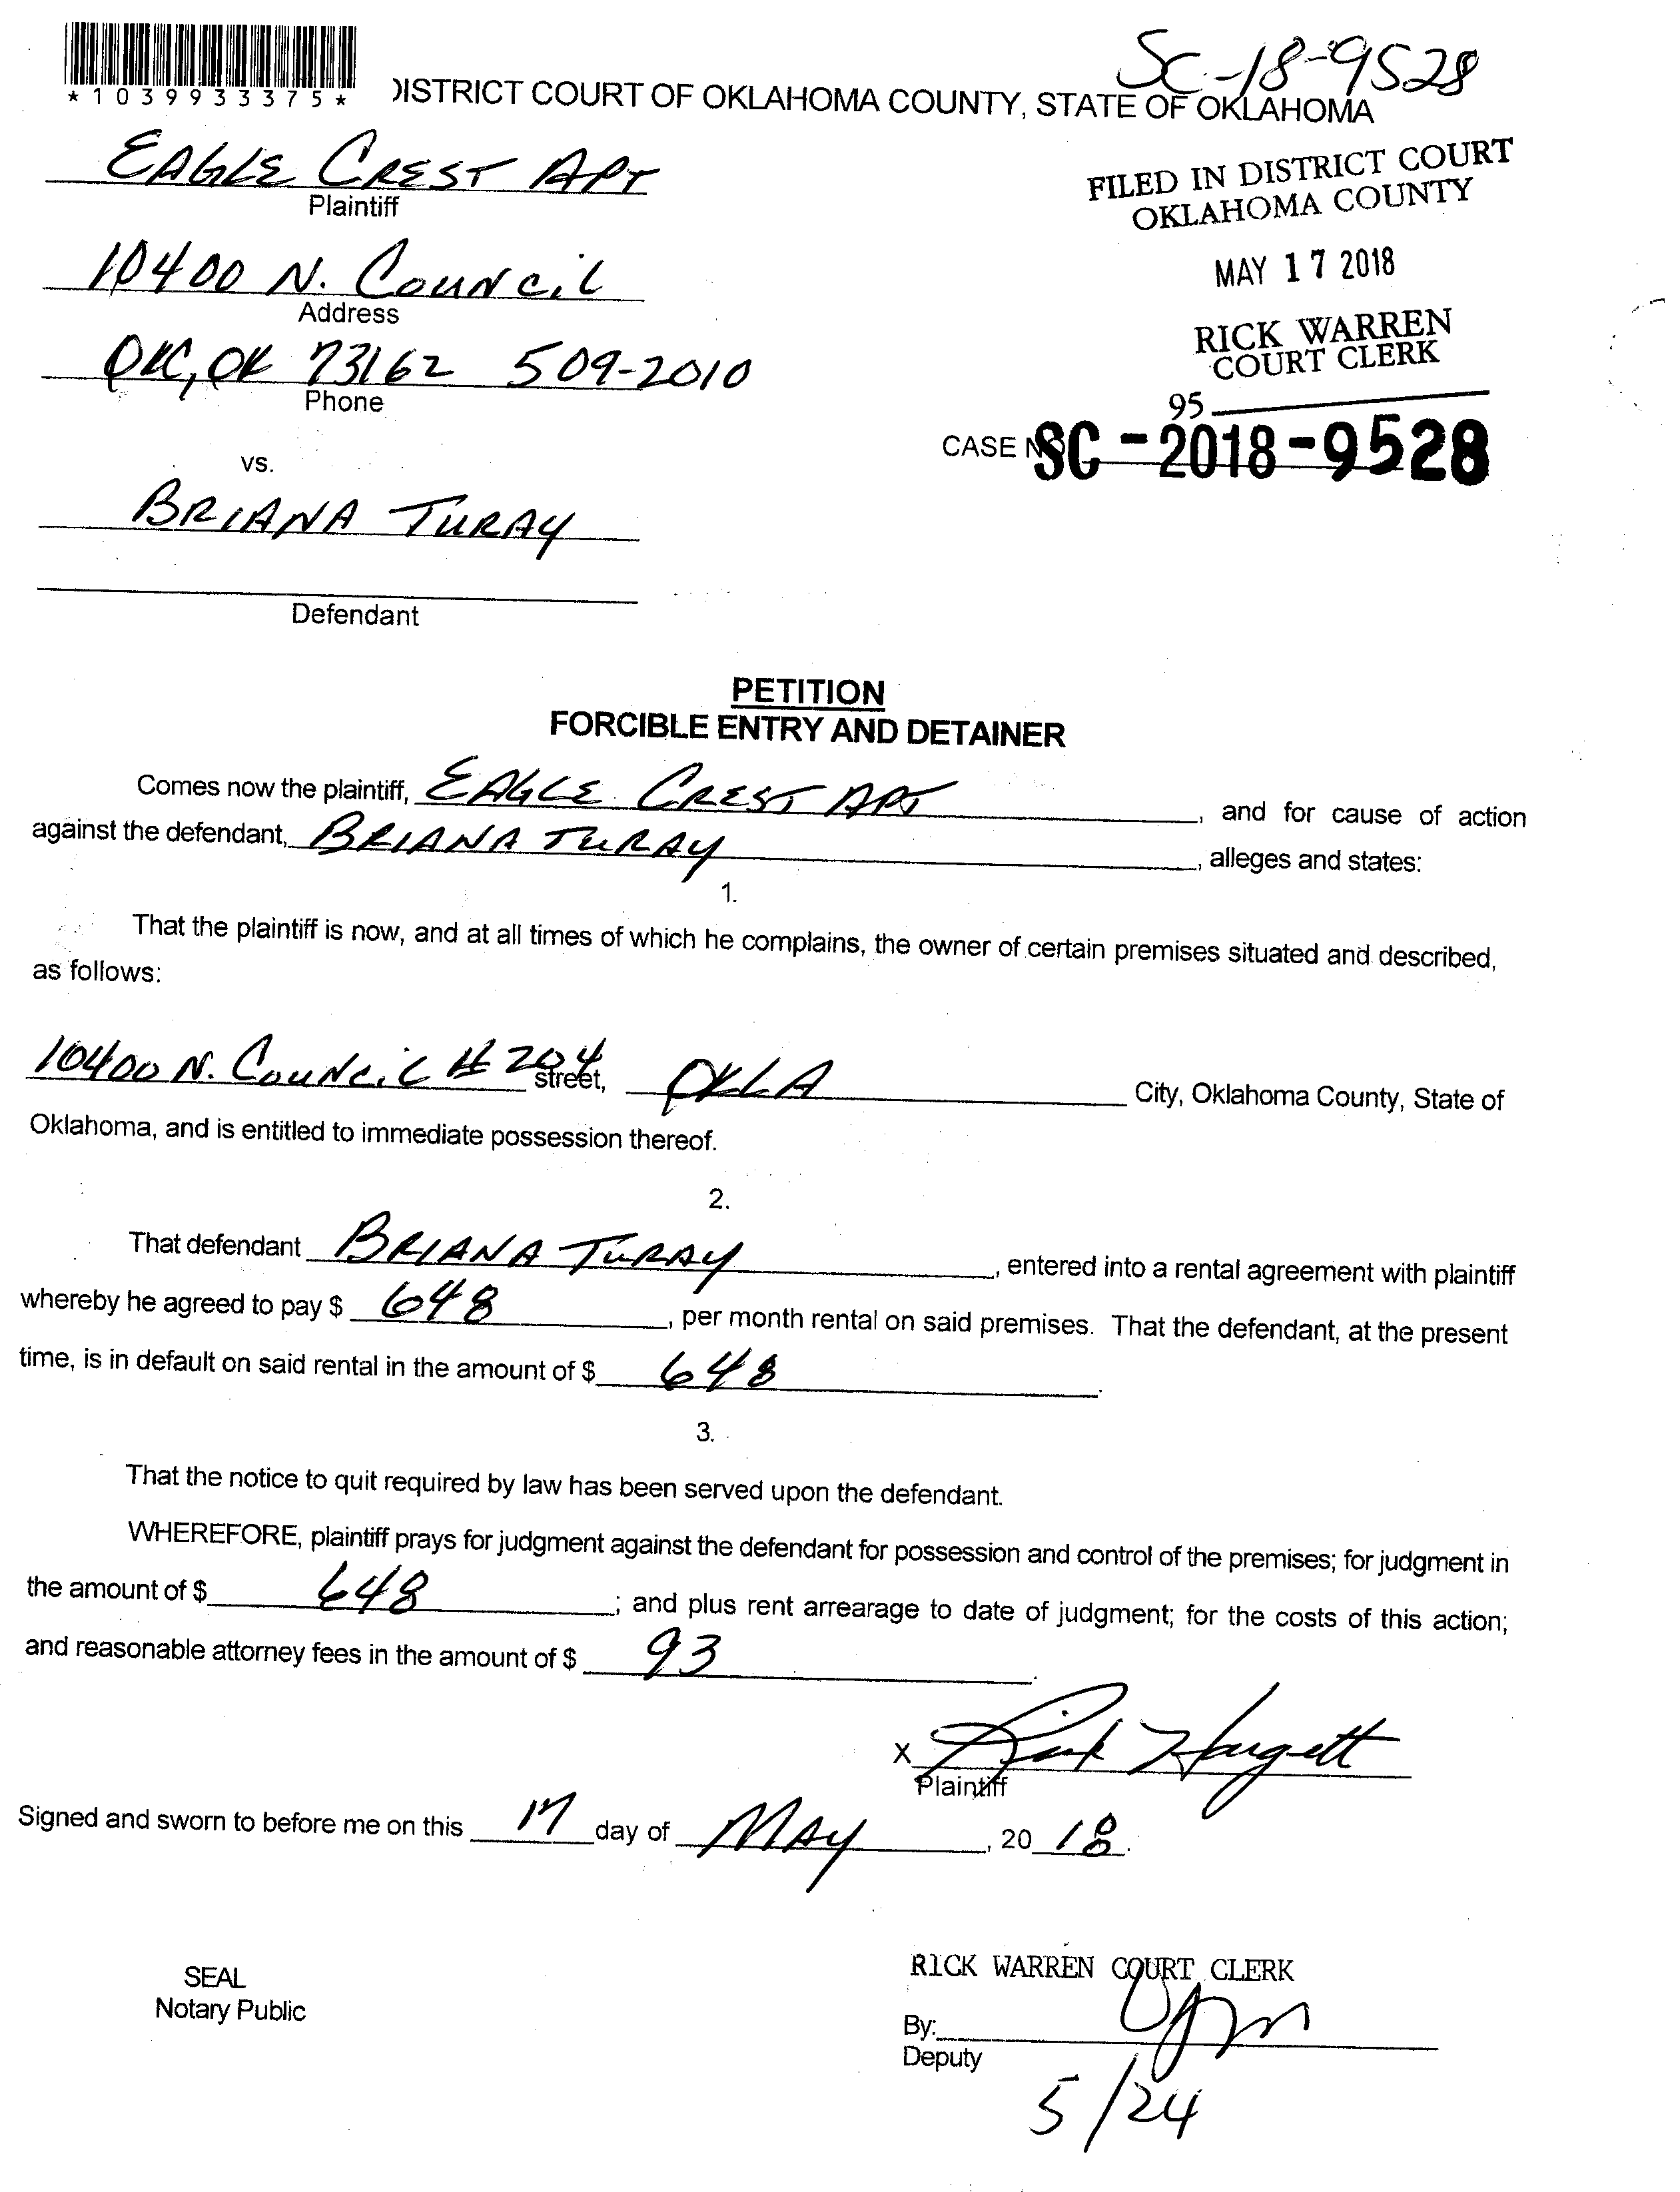 SC-18-9528
*1039933375*
DISTRICT COURT OF OKLAHOMA COUNTY, STATE OF OKLAHOMA
EAGLE CREST APT
Plaintiff
FILED IN DISTRICT COURT
OKLAHOMA COUNTY
10400 N. COUNCIL
Address
MAY 17 2018
OKC, OK 73162 509-2010
Phone
RICK WARREN
COURT CLERK
95
CASE NO SC-2018-9528
vs.
BRIANA TURAY
Defendant
PETITION
FORCIBLE ENTRY AND DETAINER
Comes now the plaintiff, EAGLE CREST APT, and for cause of action
against the defendant, BRIANA TURAY, alleges and states:
1.
That the plaintiff is now, and at all times of which he complains, the owner of certain premises situated and described,
as follows:
10400 N. COUNCIL # 204 street, OKLA City, Oklahoma County, State of
Oklahoma, and is entitled to immediate possession thereof.
2.
That defendant BRIANA TURAY, entered into a rental agreement with plaintiff
whereby he agreed to pay $ 648, per month rental on said premises. That the defendant, at the present
time, is in default on said rental in the amount of $ 648.
3.
That the notice to quit required by law has been served upon the defendant.
WHEREFORE, plaintiff prays for judgment against the defendant for possession and control of the premises; for judgment in
the amount of $ 648; and plus rent arrearage to date of judgment; for the costs of this action;
and reasonable attorney fees in the amount of $ 93.
X Rick Hargett
Plaintiff
Signed and sworn to before me on this 17 day of MAY, 20 18.
SEAL
Notary Public
RICK WARREN COURT CLERK
By:
Deputy
5/24